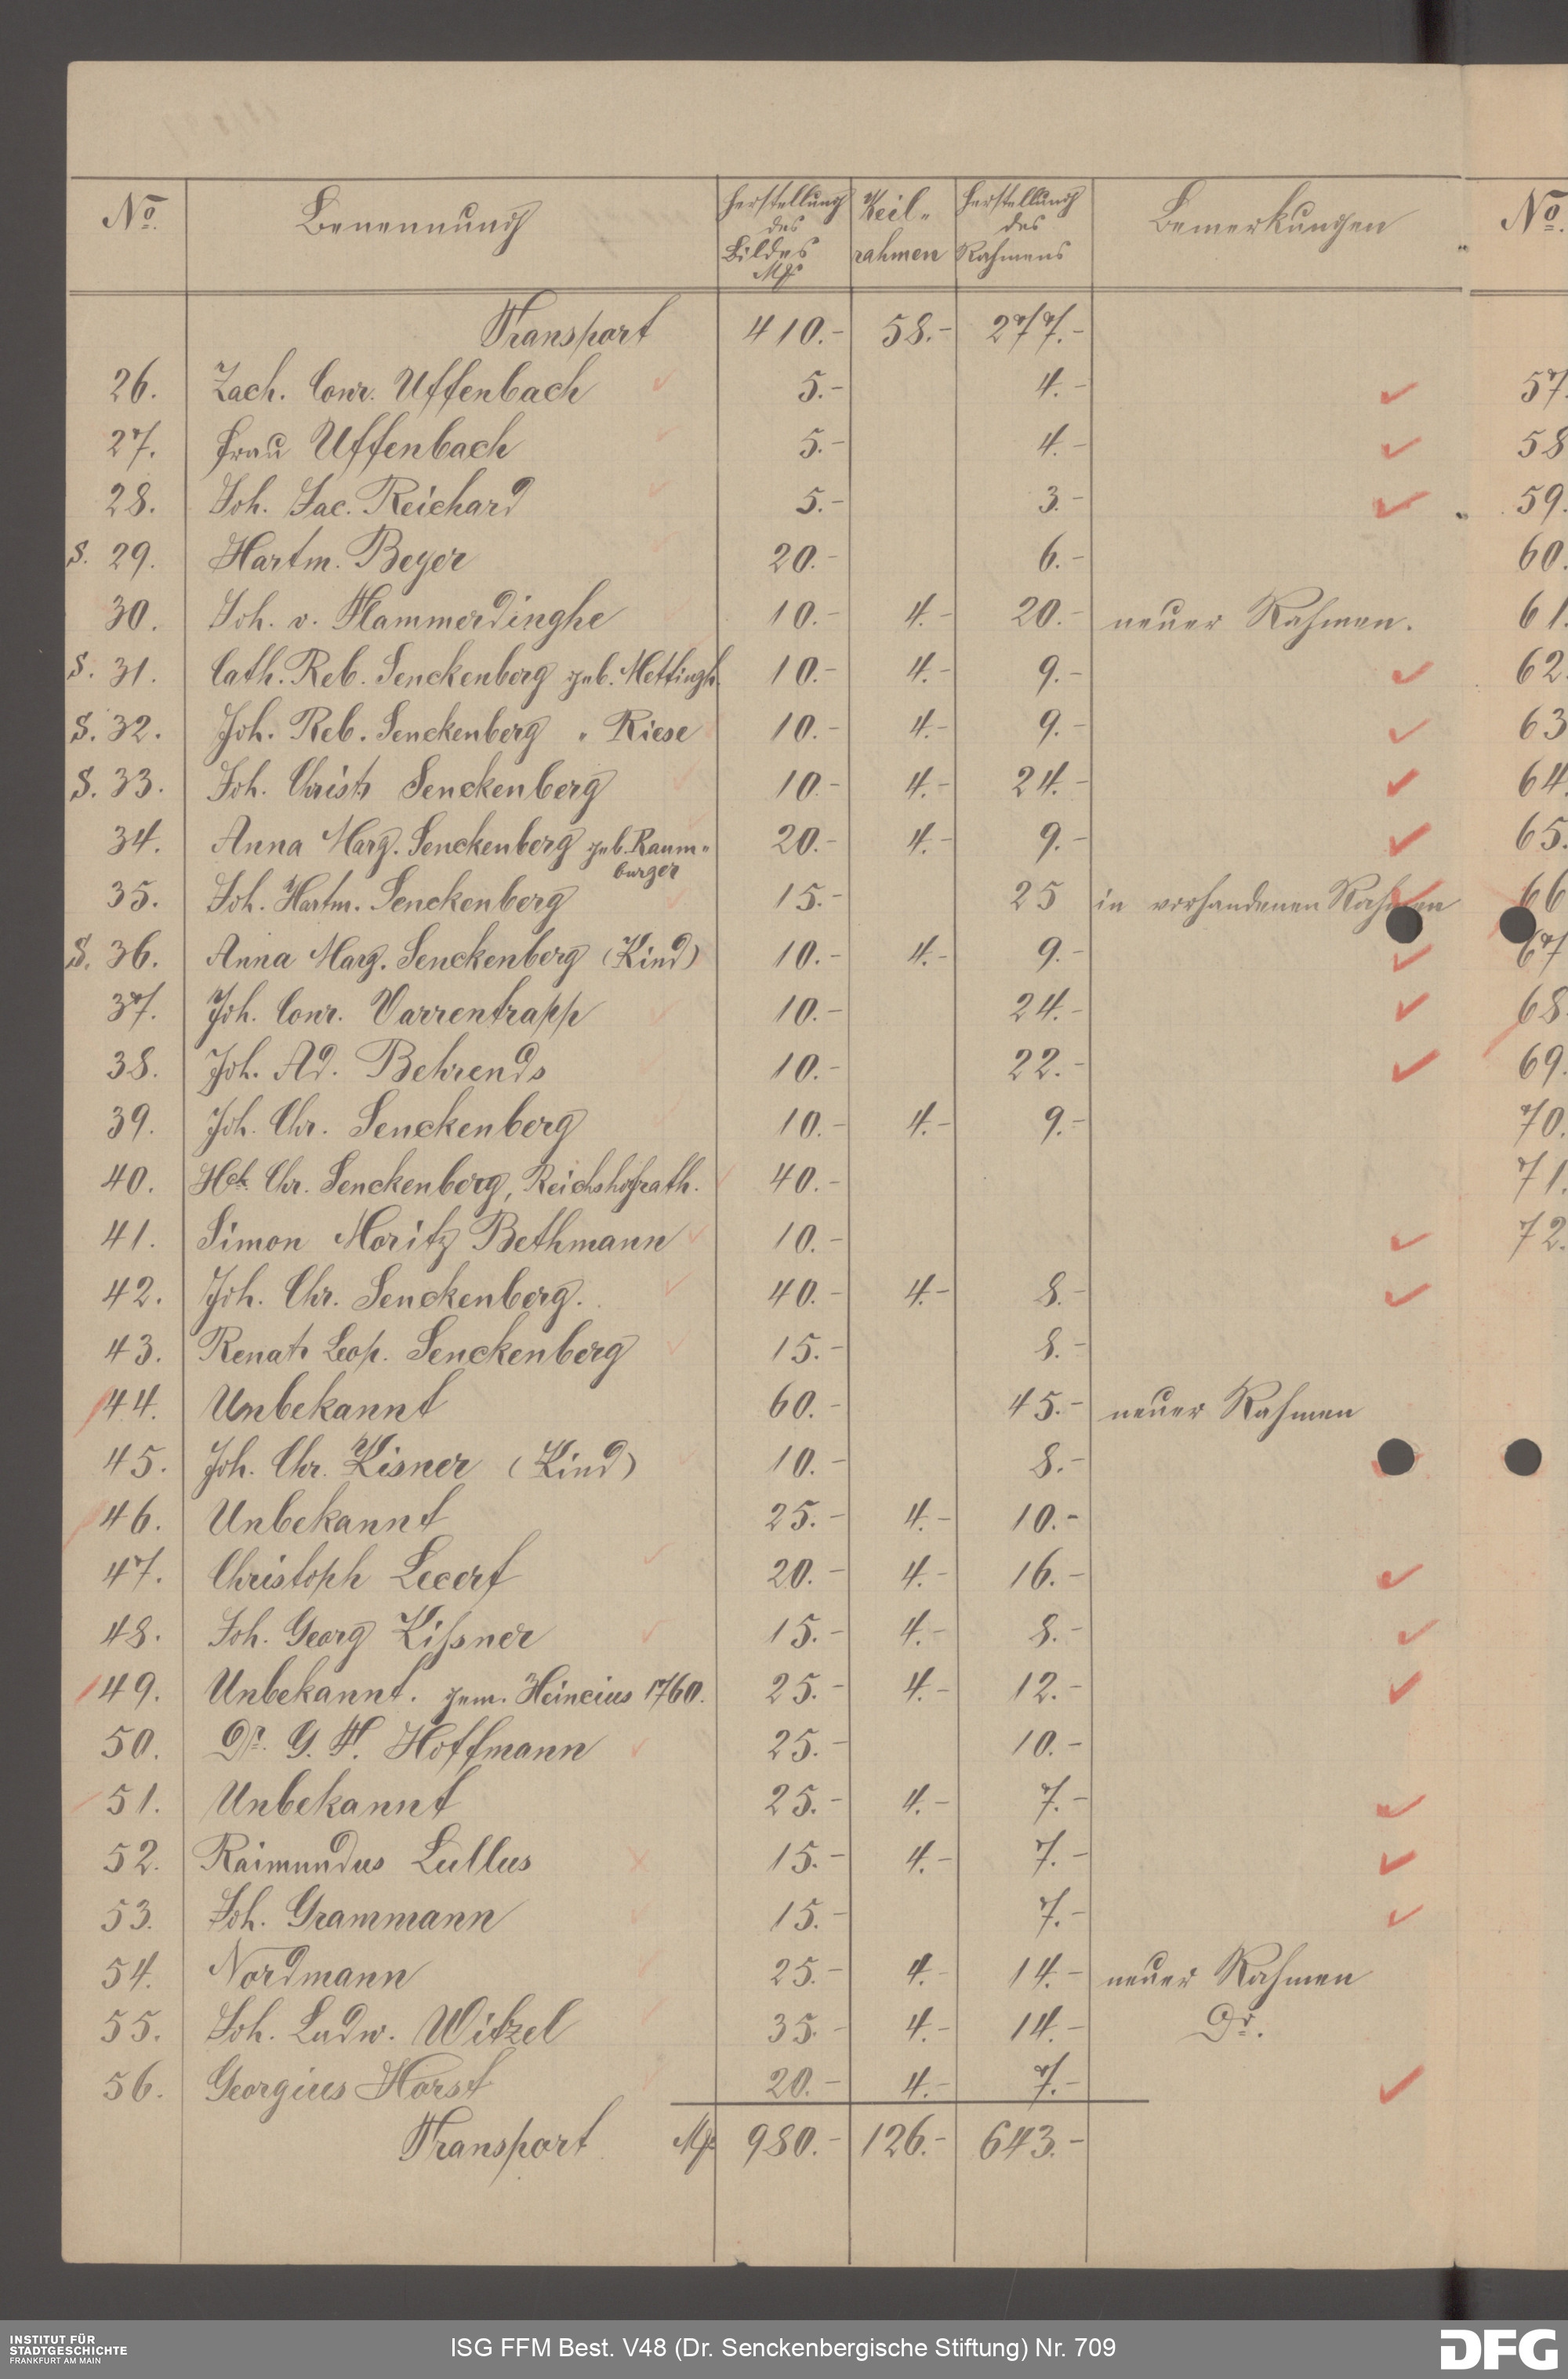 No. Benennung Herstellung des Bildes Mk Keil- rahmen Herstellung des Rahmens Bemerkungen No.
Transport 410.- 58.- 277.-
26. Zach. Conr. Uffenbach 5.- 4.- 57.
27. Frau Uffenbach 5.- 4.- 58
28. Joh. Jac. Reichard 5.- 3.- 59.
S. 29. Hartm. Beyer 20.- 6.- 60.
30. Joh. v. Hammerdinghe 10.- 4.- 20.- neuer Rahmen. 61.
S. 31. Cath. Reb. Senckenberg geb. Mettingh. 10.- 4.- 9.- 62.
S. 32. Joh. Reb. Senckenberg " Riese 10.- 4.- 9.- 63
S. 33. Joh. Christ. Senckenberg 10.- 4.- 24.- 64.
34. Anna Marg. Senckenberg geb. Raum- 20.- 4.- 9.- 65.
burger
35. Joh. Hartm. Senckenberg 15.- 25 in vorhandenen Rahmen 66
S. 36. Anna Marg. Senckenberg (Kind) 10.- 4.- 9.- 67
37. Joh. Conr. Varrentrapp 10.- 24.- 68.
38. Joh. Ad. Behrends 10.- 22.- 69.
39. Joh. Chr. Senckenberg 10.- 4.- 9.- 70.
40. Hch. Chr. Senckenberg, Reichshofrath. 40.- 71.
41. Simon Moritz Bethmann 10.- 72.
42. Joh. Chr. Senckenberg. 40.- 4.- 8.-
43. Renat. Leop. Senckenberg 15.- 8.-
44. Unbekannt 60.- 45.- neuer Rahmen
45. Joh. Chr. Kisner (Kind) 10.- 8.-
46. Unbekannt 25.- 4.- 10.-
47. Christoph Lecerf 20.- 4.- 16.-
48. Joh. Georg Kißner 15.- 4.- 8.-
49. Unbekannt. gem. Heincius 1760. 25.- 4.- 12.-
50. Dr. G. F. Hoffmann 25.- 10.-
51. Unbekannt 25.- 4.- 7.-
52. Raimundus Lullus 15.- 4.- 7.-
53. Joh. Grammann 15.- 7.-
54. Nordmann 25.- 4.- 14.- neuer Rahmen
55. Joh. Ludw. Witzel 35.- 4.- 14.- Do.
56. Georgius Horst 20.- 4.- 7.-
Transport Mk 980.- 126.- 643.-
INSTITUT FÜR
STADTGESCHICHTE
FRANKFURT AM MAIN
ISG FFM Best. V48 (Dr. Senckenbergische Stiftung) Nr. 709
DFG